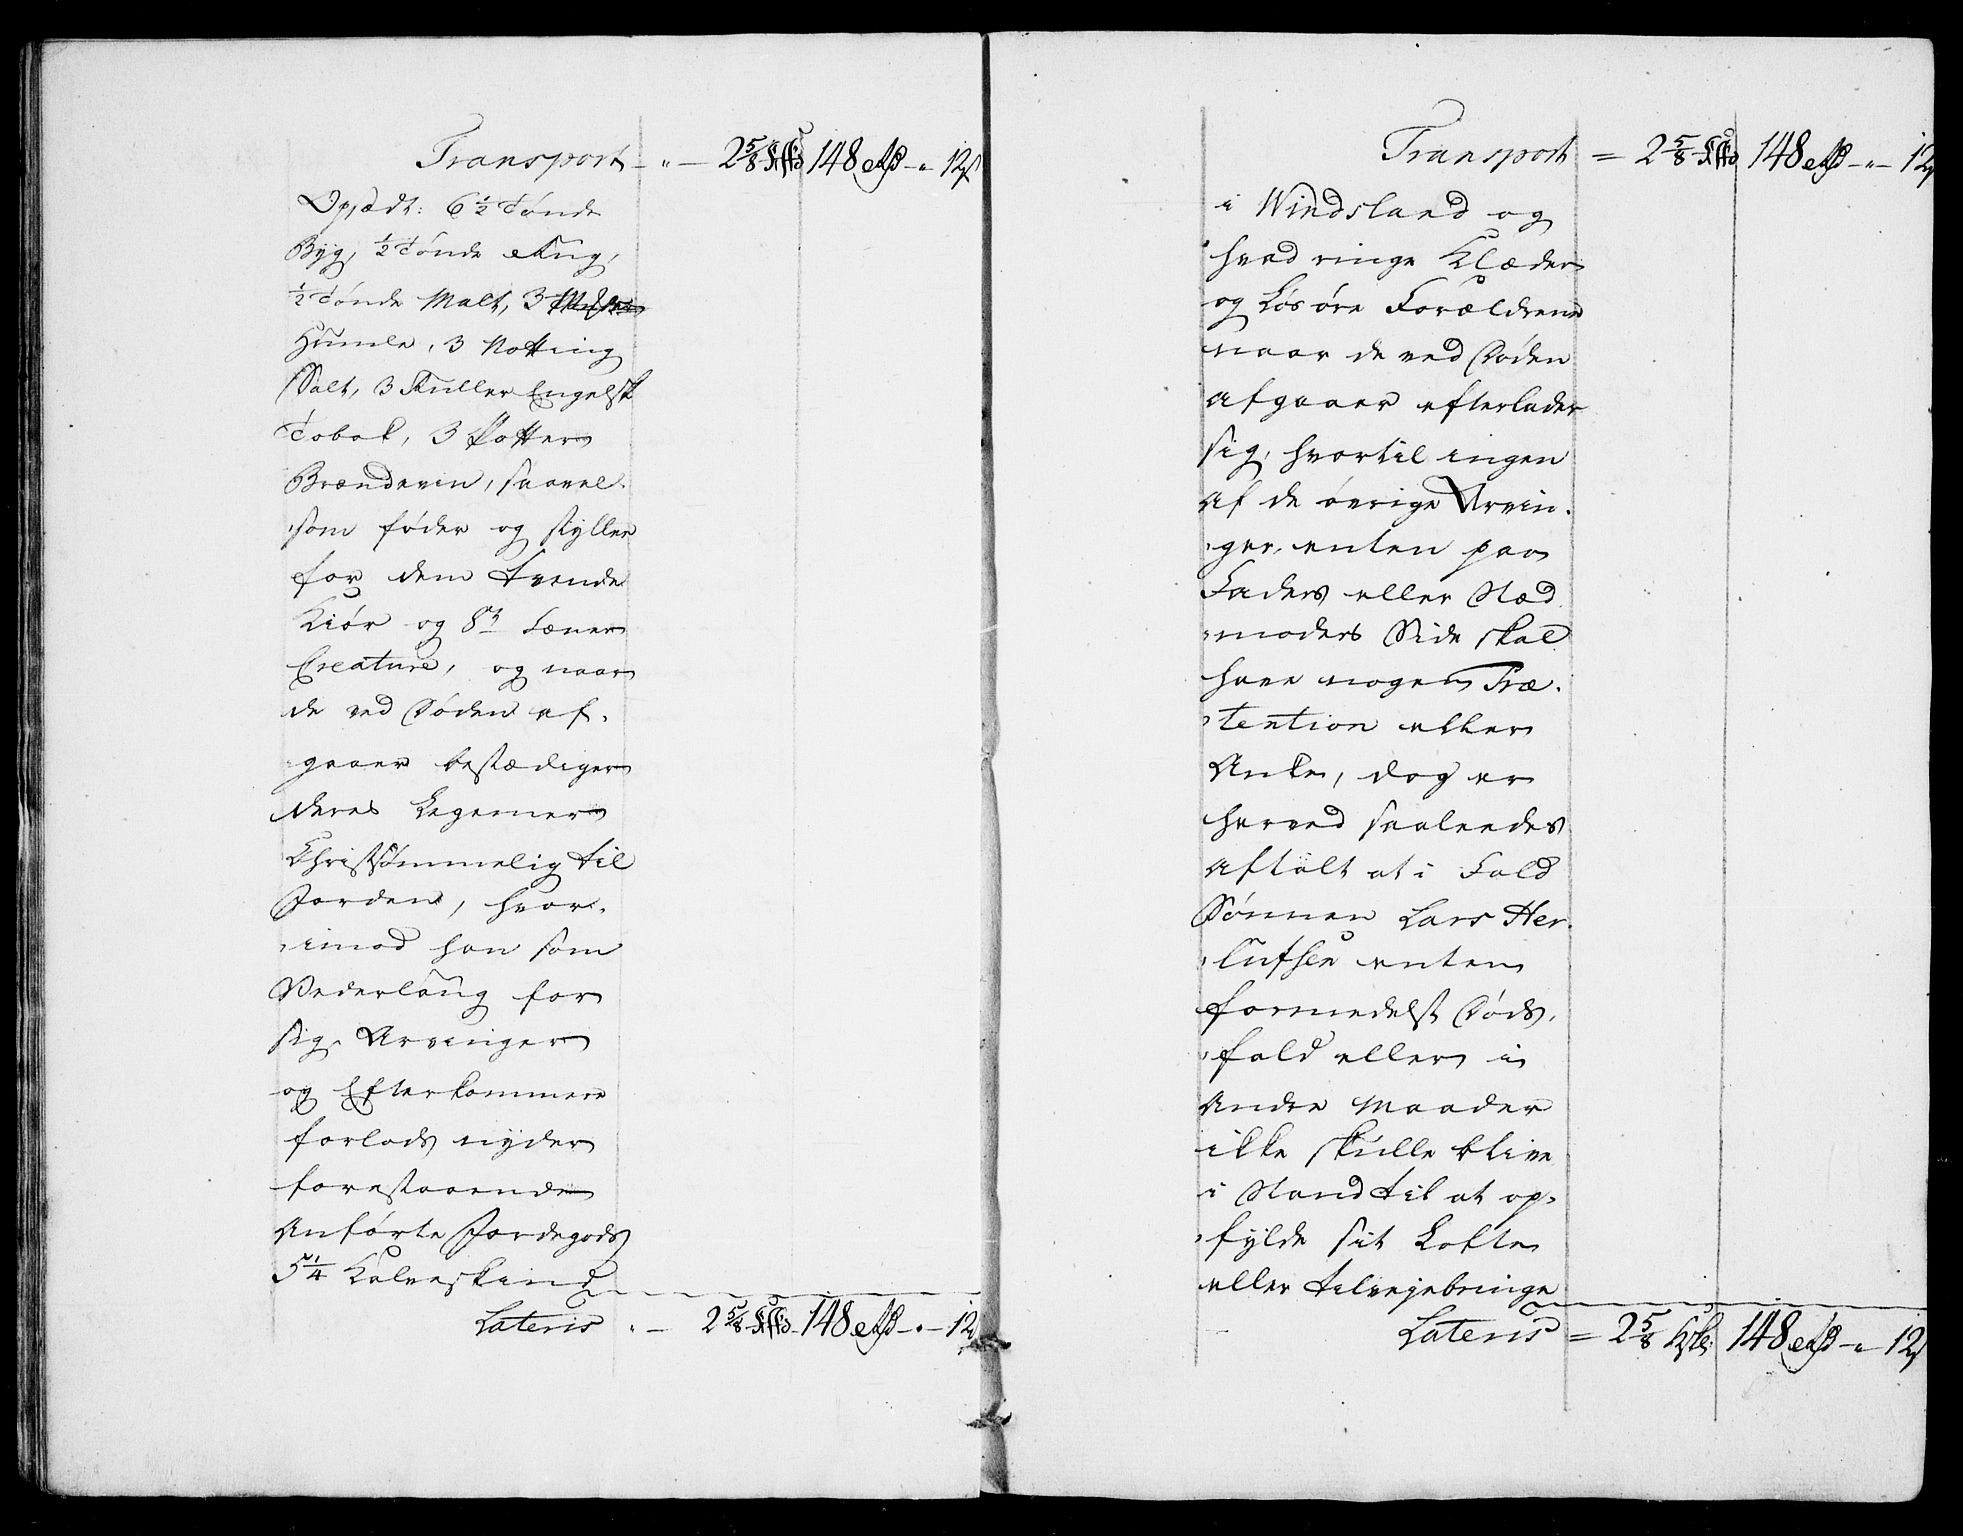 Transport - " - 2 5/8 Skind 148 Rd - " - 12 s
Opsædt: 6 1/2 Tønde
Byg, 1/2 Tønde Rug,
1/2 Tønde Malt, 3
Humle, 3 Notting
Salt, 3 Ruller Engelsk
Tobak, 3 Potter
Brændeviin, saavel
som føder og skyller
for dem tvende
Kiør og 8te
Creature, og naar
de ved Døden af-
gaaer bestædiger
deres Legemer
Christsømmelig til
Jorden, hvor-
imod han som
Vederlaug for
sig, Arvinger
og Efterkommere
forlods nyder
forestaaende
Anførte Jordegods
5 1/4 Kalveskind
Lateris " - 2 5/8 Skind 148 Rd - " - 12
Transport = 2 5/8 Skind 148 Rd - " - 12 s
i Windsland og
hvad ringe Klæder
og Løsøre Forældrene
naar de ved Døden
afgaaer efterlader
sig, hvortil ingen
af de øvrige Arvin-
ger, enten paa
Faders eller Stæd
moders Side skal
have nogen Præ-
tention eller
Anke, dog er
herved saaledes
aftalt at i Fald
Sønnen Lars Her-
lufsen enten
formedelst Døds-
fald eller i
Andre Maader
ikke skulle blive
i Stand til at op-
fylde sit Løfte
eller tilvejebringe
Lateris = 2 5/8 148 Rd - " - 12 s